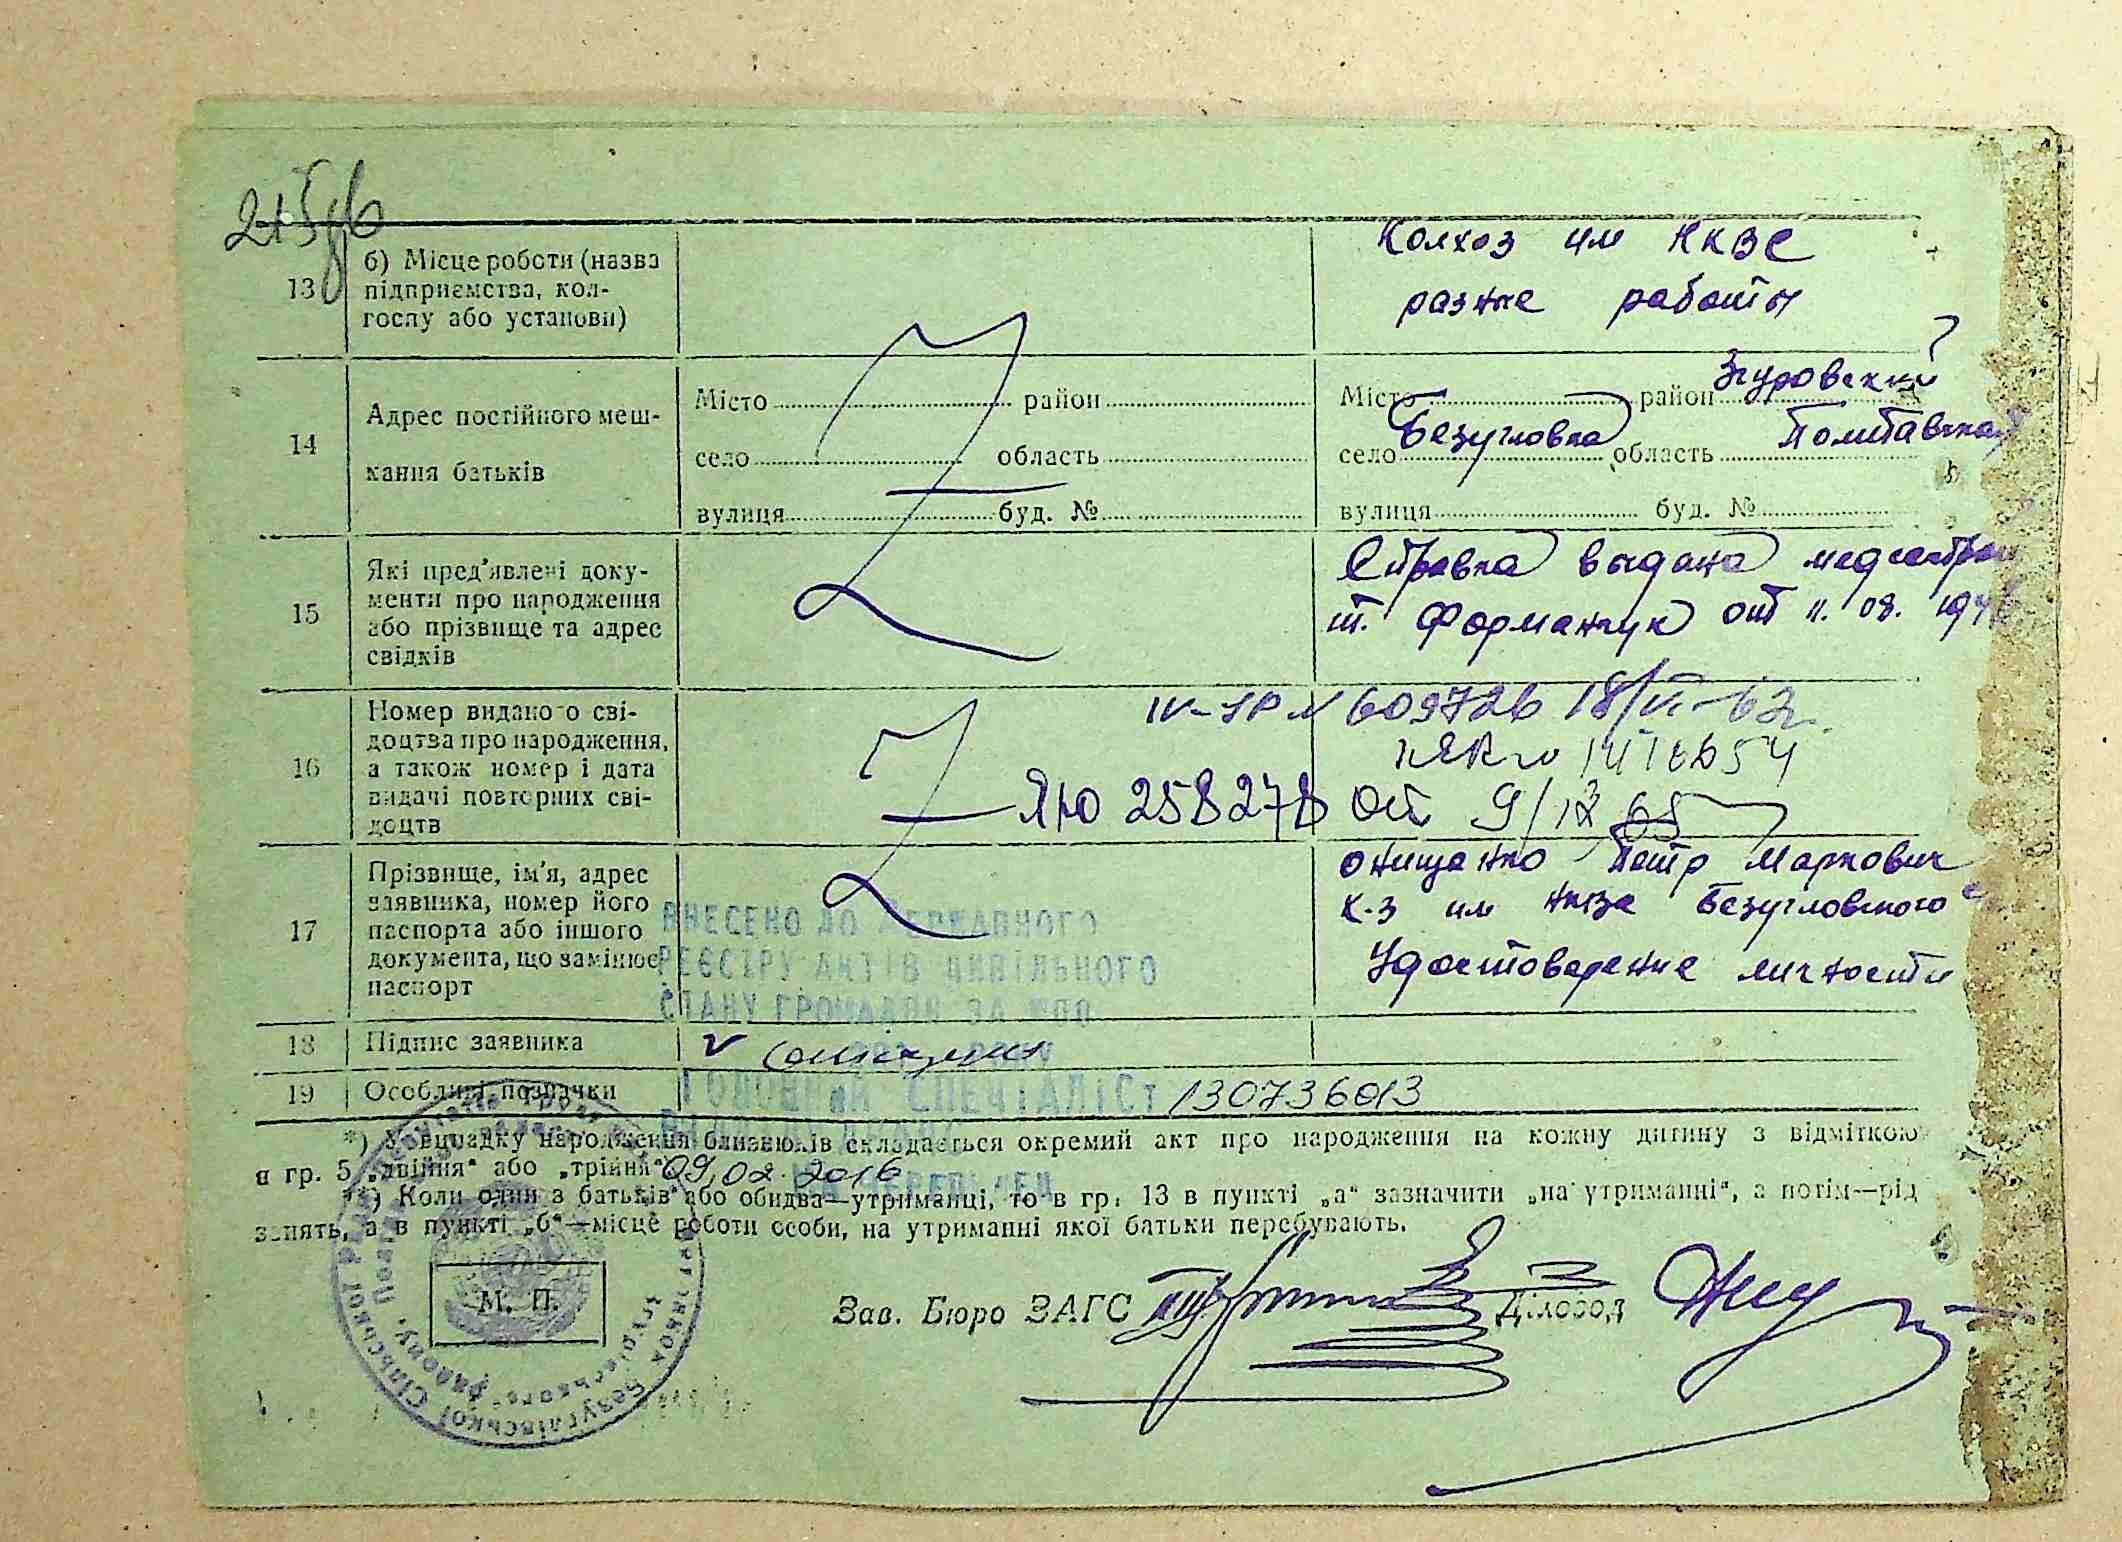 13
б) Місце роботи (назва
підприємства, кол-
госпу або установи)
Колхоз им НКВС
разные работы
14
Адрес постійного меш-
кання батьків
Місто район
село область
вулиця буд. №
Місто район Згуровский
село Безугловка область Полтавская
вулиця буд. №
15
Які пред'явлені доку-
менти про народження
або прізвище та адрес
свідків
Справка выдана медсестрой
т. Форманчук от 11. 08. 194
16
Номер виданого сві-
доцтва про народження,
а також номер і дата
видачі повторних сві-
доцтв
IV-УР № 609726 18/VI-62г.
ЯЮ 258278 от 9/12 65
17
Прізвище, ім'я, адрес
заявника, номер його
паспорта або іншого
документа, що замінює
паспорт
Онищенко Петр Маркович
к-з им Безугловского
Удостоверение личности
ВНЕСЕНО ДО ДЕРЖАВНОГО
РЕЄСТРУ АКТІВ ЦИВІЛЬНОГО
СТАНУ ГРОМАДЯН ЗА №
18
Підпис заявника
19
Особливі позначки
ГОЛОВНИЙ СПЕЦІАЛІСТ
130736013
*) У випадку народження близнюків складається окремий акт про народження на кожну дитину з відміткою
в гр. 5 „двійня“ або „трійня“
09,02.2016
**) Коли один з батьків або обидва—утриманці, то в гр. 13 в пункті „а“ зазначити „на утриманні“, а потім—рід
занять, а в пункті „б“—місце роботи особи, на утриманні якої батьки перебувають.
М. П.
Зав. Бюро ЗАГС
Діловод
Безуглівської Сільської